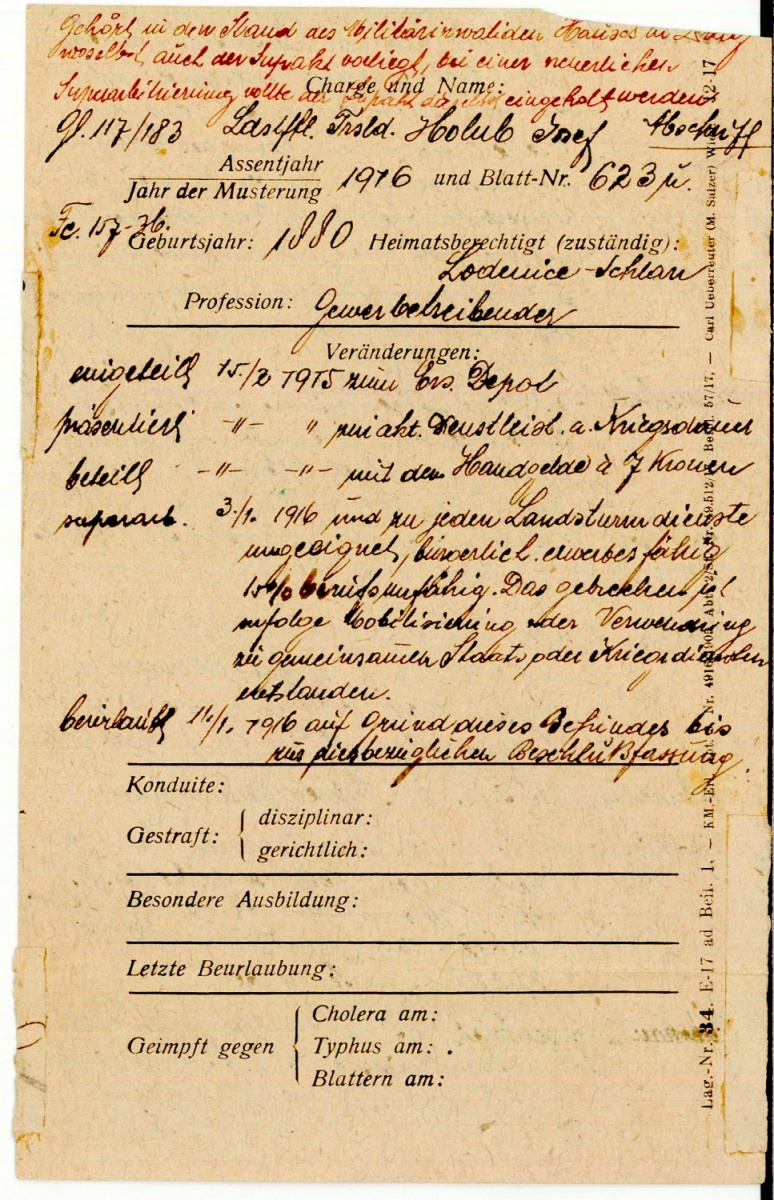 Gehört in den Stand des Militärinvaliden Hauses in
woselbst auch der Suprakt vorliegt, bei einer neuerlichen
Superarbitrierung wolle der Suprakt eingeholt werden
Charge und Name:
Gf. 117/183 Ldstft. Holub Josef Abschrift
Assentjahr
Jahr der Musterung 1916 und Blatt-Nr. 623
Geburtsjahr: 1880 Heimatsberechtigt (zuständig):
Lodenice - Schlan
Profession: Gewerbetreibender
Veränderungen:
eingeteilt 15./2 1915 zum Ers. Depot
präsentiert -"- " zur akt. Dienstleist. a. Kriegsdauer
beteilt -"- -"- mit dem Handgelde à 7 Kronen
superarb. 3./1. 1916 und zu jeden Landsturmdienste
ungeeignet, bürgerlich erwerbsfähig
15% berufsunfähig. Das gebrechen ist
infolge Mobilisierung oder Verwendung
zu gemeinsamen Staats oder Kriegsdiensten
entstanden.
beurlaubt 11./1. 1916 auf Grund dieses Befundes bis
zur diesbezüglichen Beschlußfassung.
Konduite:
Gestraft: disziplinar:
gerichtlich:
Besondere Ausbildung:
Letzte Beurlaubung:
Cholera am:
Geimpft gegen Typhus am:
Blattern am:
Lag.-Nr. 34. E-17 ad Beil. 1. — KM.-Erl. — Carl Ueberreuter (M. Salzer)